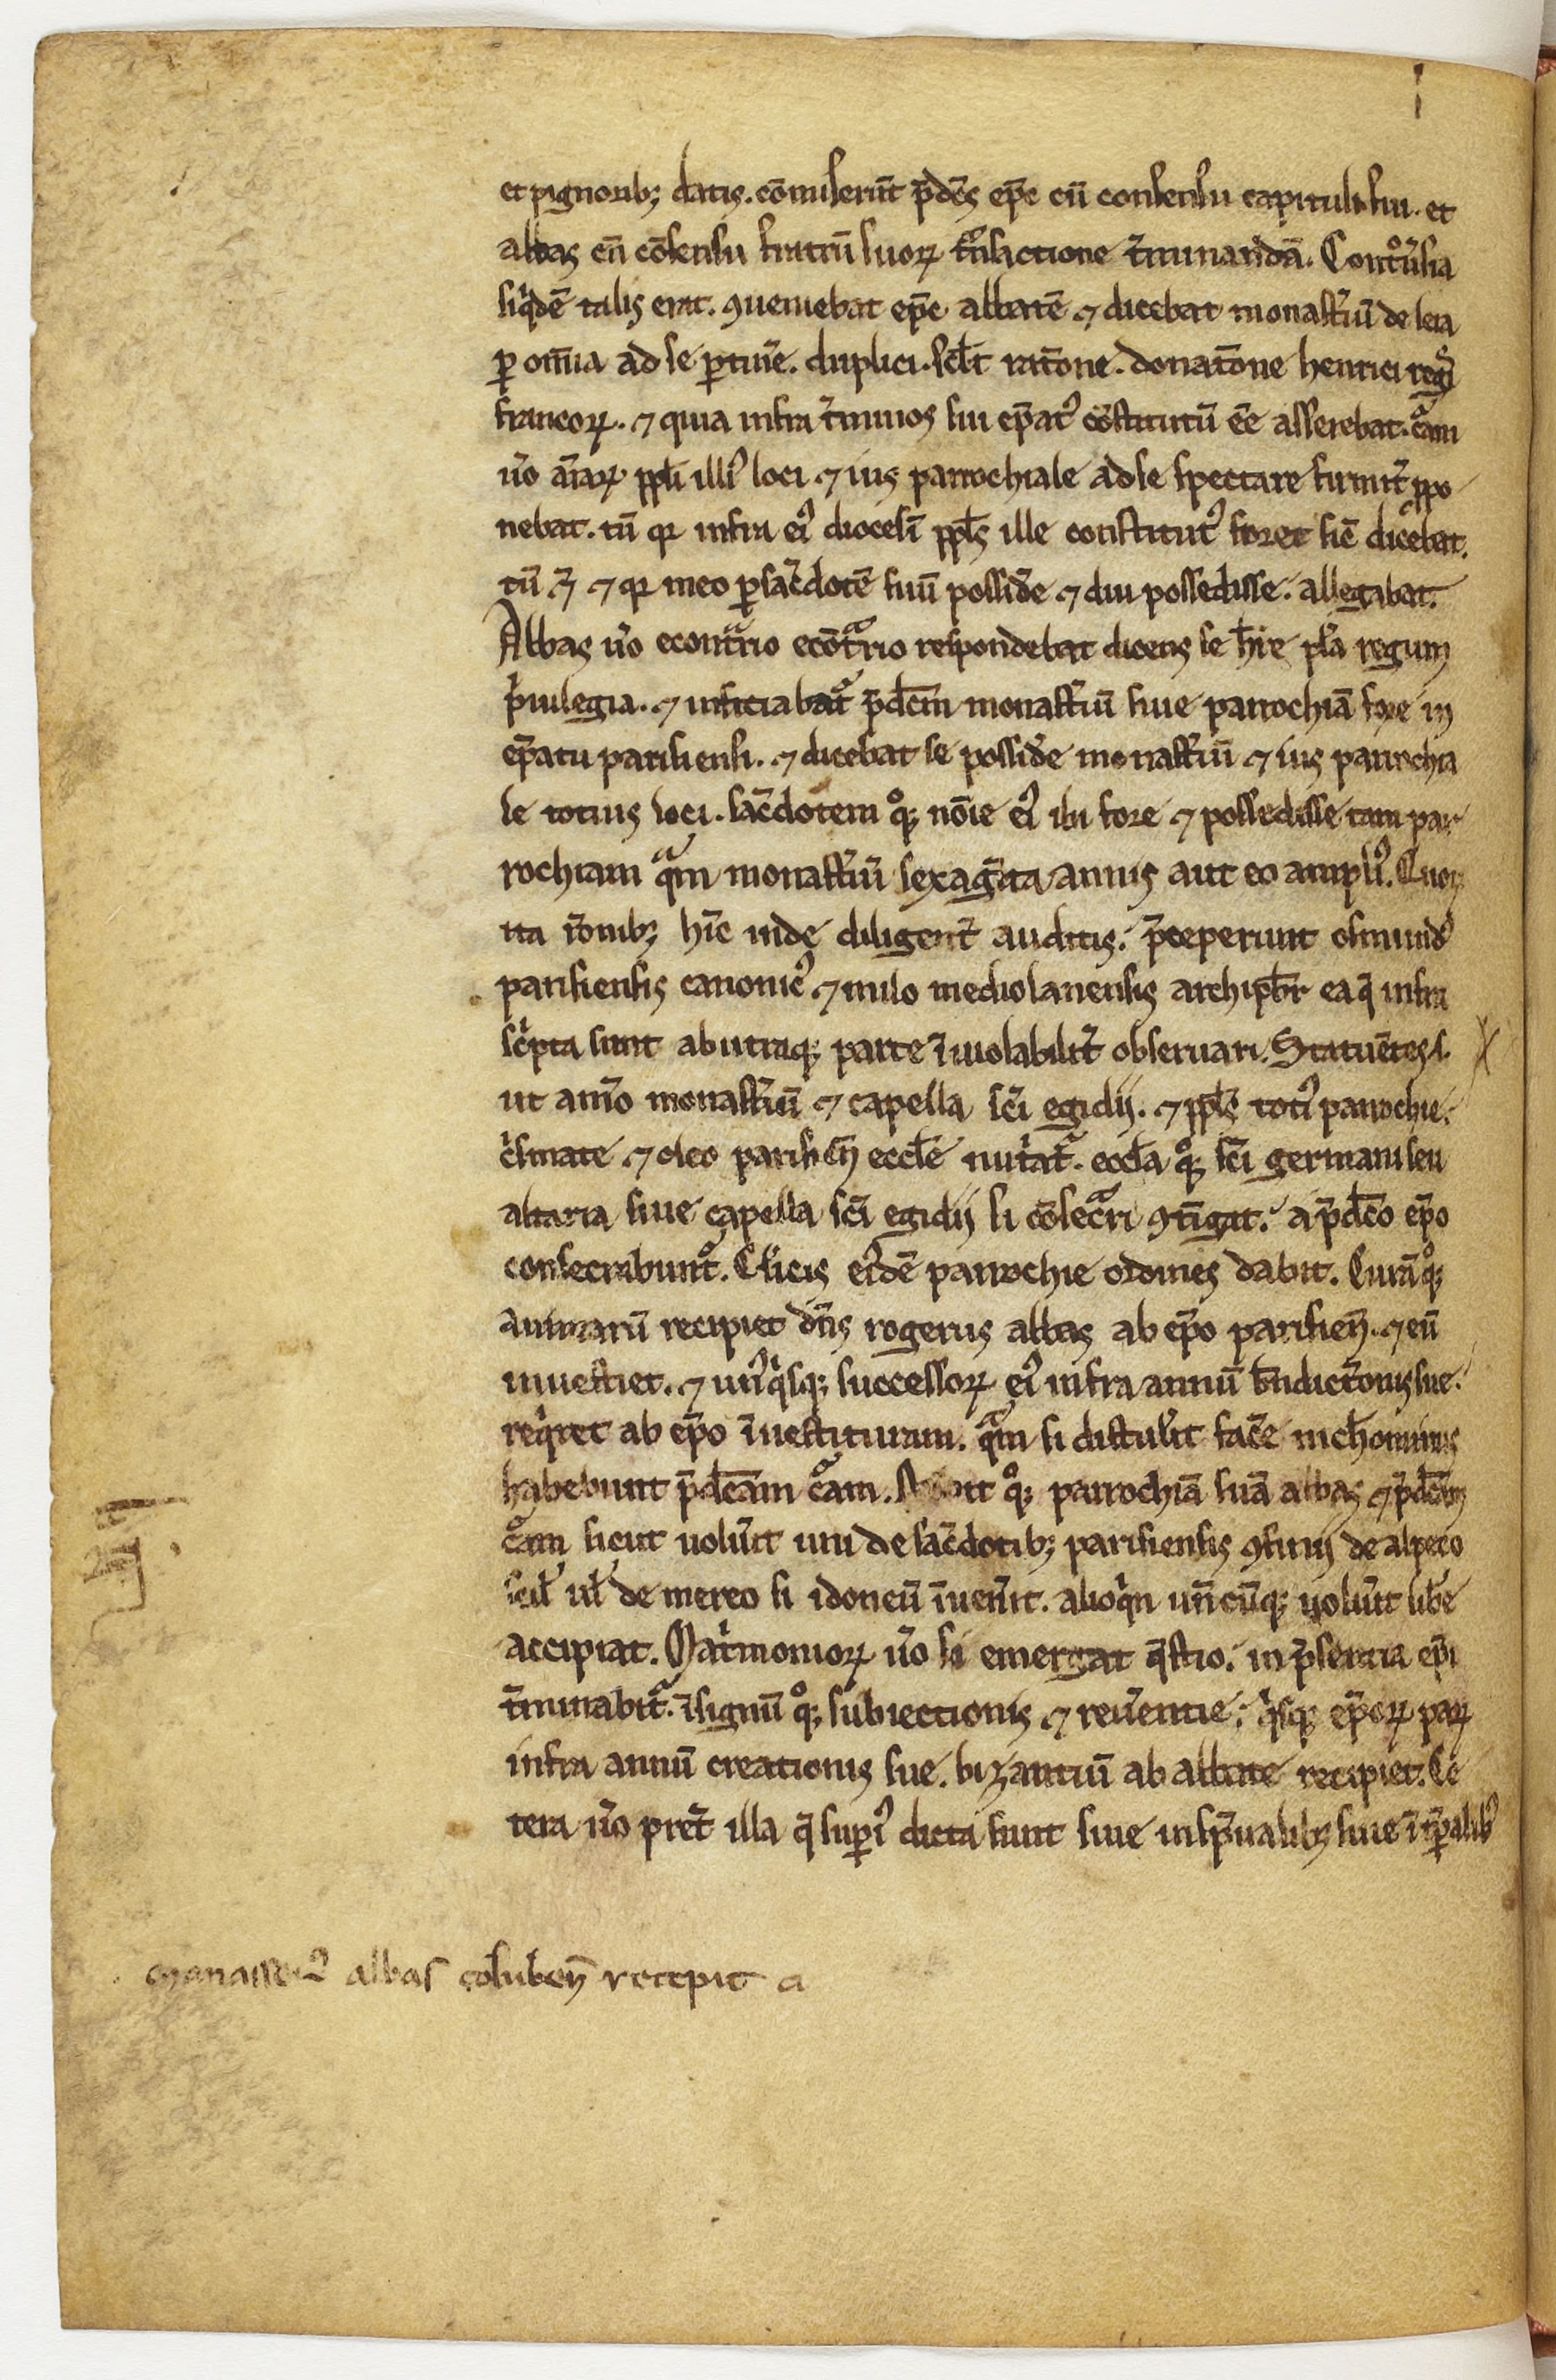 et pignorib; datis. cōmiserūt p̄dc̄s ep̄c cū consensu capituli sui. et
abbas cū cōsensu fratrū suoꝝ tͦnsactione t̄minandā. Contͦu̾sia
siq̇dē talis erat. ꝯueniebat ep̄c abbatē ⁊ dicebat monast̄iū de leia
ꝑ om̄ia ad se ꝑtin̄e. duplici. scl̄t rat̄one. donat̄one henrici regꝭ
francoꝝ. ⁊ quia infra t̄minos sui ep̄atꝰ cōstitutū ēe asserebat. cͣam
u̾o aīaꝝ ppl̄i illiꝰ loci ⁊ ius parrochiale ad se spectare firmit̄ ꝓpo
nebat. tū qꝛ infra eiꝰ diocesī ppl̄s ille constitutꝰ foret sic̄ dicebat.
tū  ⁊ qꝛ meo ꝑ sac̄dotē suū possid̄e ⁊ diu possedisse. allegabat.
Abbas u̾o econtͣrio ecōtͣrio respondebat dicens se hr̄e pl̄a regum
pͥuilegia. ⁊ inficiabatᷣ p̄dc̄m monast̄iū siue parrochiā fore in
ep̄atu parisiensi. ⁊ dicebat se possid̄e monast̄iū ⁊ ius parrochia
le totius loci. sac̄dotem qͦ; nōie eiꝰ ibi fore ⁊ possedisse tam par
rochiam qͣm monast̄iū sexaḡita annis aut eo ampliꝰ. Quoꝝ
ita rōnib; hīc inde diligent̄ auditis. p̄ceperunt osmundꝰ
parisiensis canonicꝰ ⁊ milo mediolanensis archipb̄r ea q̄ infra
scͥpta sunt ab utraq; parte īuiolabilit̄ obseruari. Statuētes .s.
ut am̄o monast̄iū ⁊ capella sc̄i egidij. ⁊ ppl̄s totiꝰ parrochie.
cͥsmate ⁊ oleo parisien̄ eccl̄e nutͥatᷣ. eccl̄a qͦ; sc̄i germani seu
altaria siue capella sc̄i egidij si cōsecͣri ꝯtīgat. a p̄dc̄o ep̄o
consecrabuntᷣ. Cl̾icis eiꝰdē parrochie ordines dabit. Curā qͦ;
animarū recipiet dn̄s rogerus abbas ab ep̄o parisien̄. ⁊ eū
inuestiet. ⁊ unꝰq̇sq; successoꝝ eiꝰ infra annū bn̄dict̄onis sue.
reqͥret ab ep̄o īuestituram. qͣm si distul̾it fac̄e nichominus
habebunt p̄dc̄am cͣam. qͦ; parrochiā suā abbas ⁊ p̄dc̄am
cͣam sicut uolu̾it uni de sac̄dotib; parisiensis ꝯfinij de alpeco
scil̄ ul̄ de mereo si idoneū īuen̾it. alioqͥn un̄cūq; uolu̾it lib̾e
accipiat. Matͥmonioꝝ u̾o si emergat q̄stio. in p̄sentia ep̄i
t̄minabitᷣ. ī signū qͦ; subiectionis ⁊ reu̾entie. qͥsq; ep̄oꝝ paꝝ
infra annū creationis sue. bizantiū ab abbate recipiet. Ce
tera u̾o pret̄ illa q̄ suꝑiꝰ dicta sunt siue in sp̄ualib; siue ī tp̄alibꝰ
manasseriꝰ abbas coluben̄ recepit a